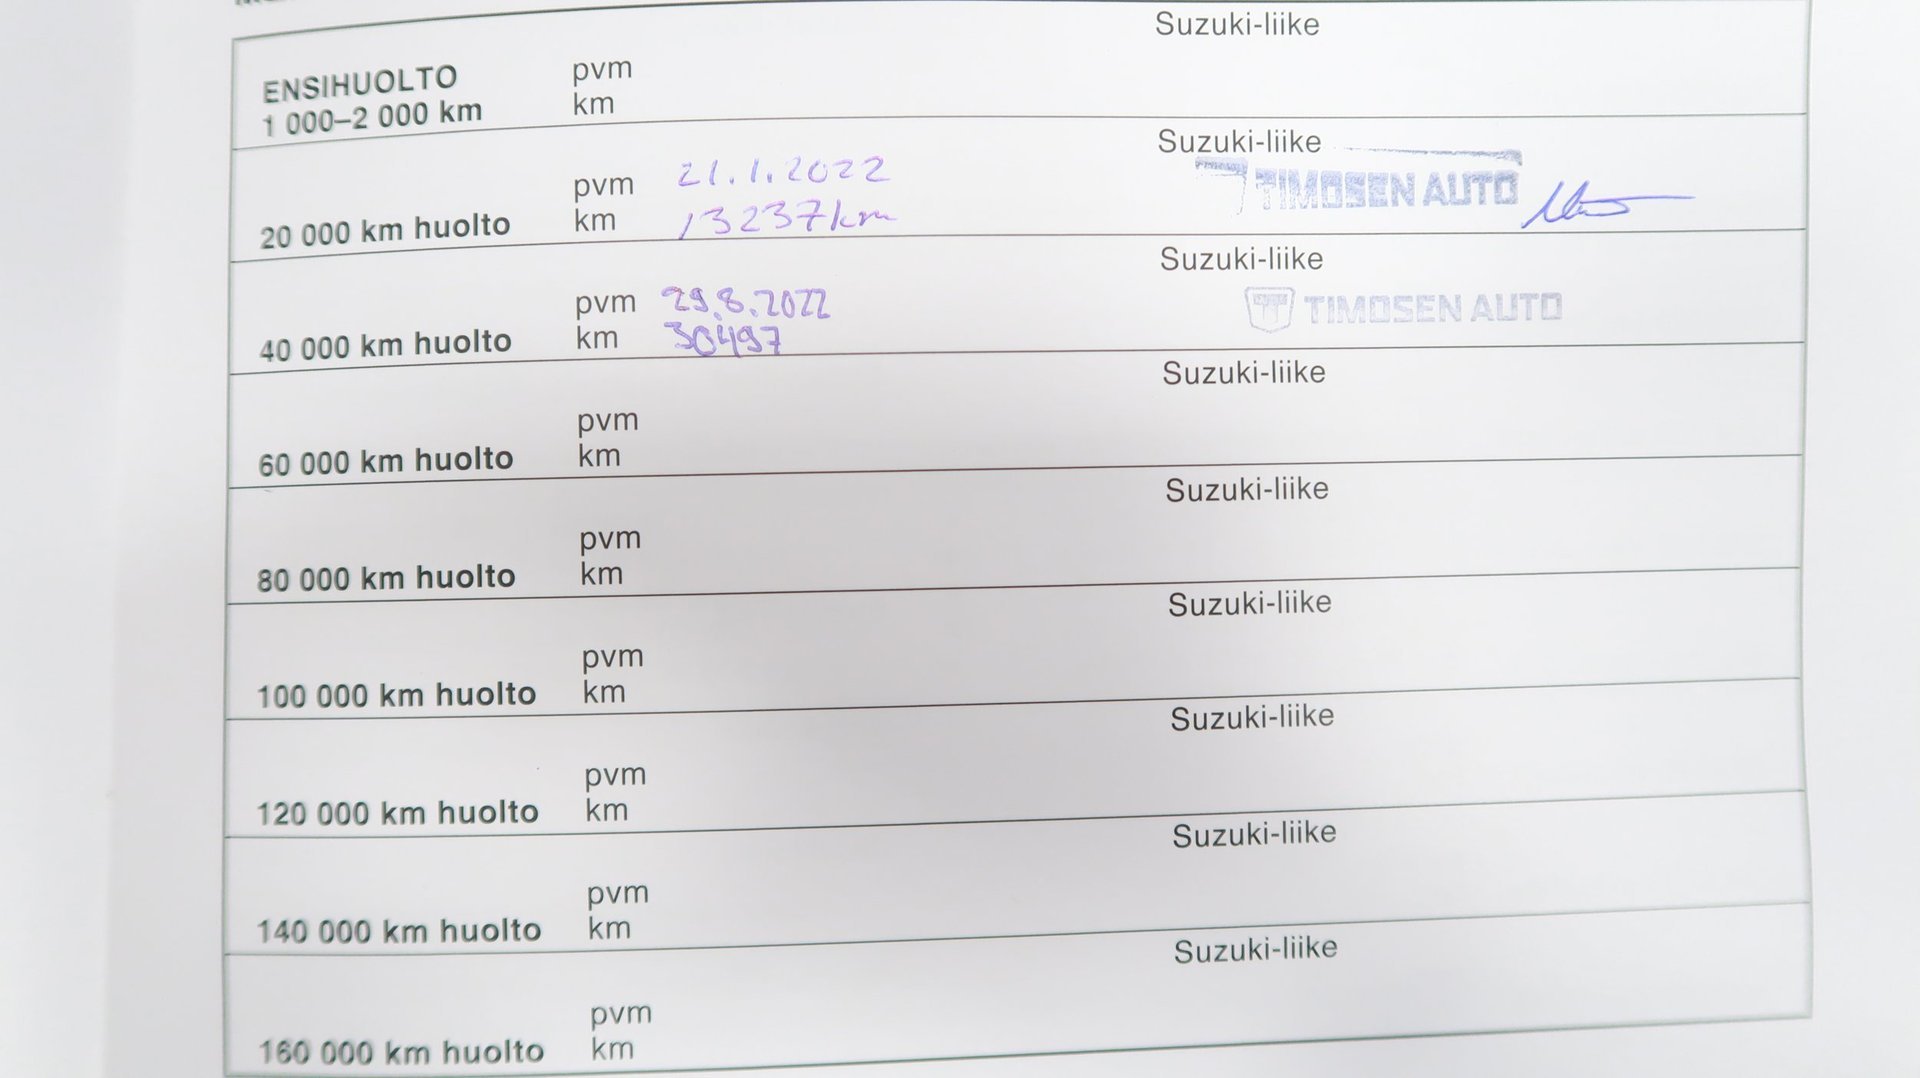 Suzuki-liike
ENSIHUOLTO pvm
1 000–2 000 km km
Suzuki-liike
pvm 21.1.2022 TIMOSEN AUTO
20 000 km huolto km 13237km
Suzuki-liike
pvm 29.8.2022 TIMOSEN AUTO
40 000 km huolto km 30497
Suzuki-liike
pvm
60 000 km huolto km
Suzuki-liike
pvm
80 000 km huolto km
Suzuki-liike
pvm
100 000 km huolto km
Suzuki-liike
pvm
120 000 km huolto km
Suzuki-liike
pvm
140 000 km huolto km
Suzuki-liike
pvm
160 000 km huolto km